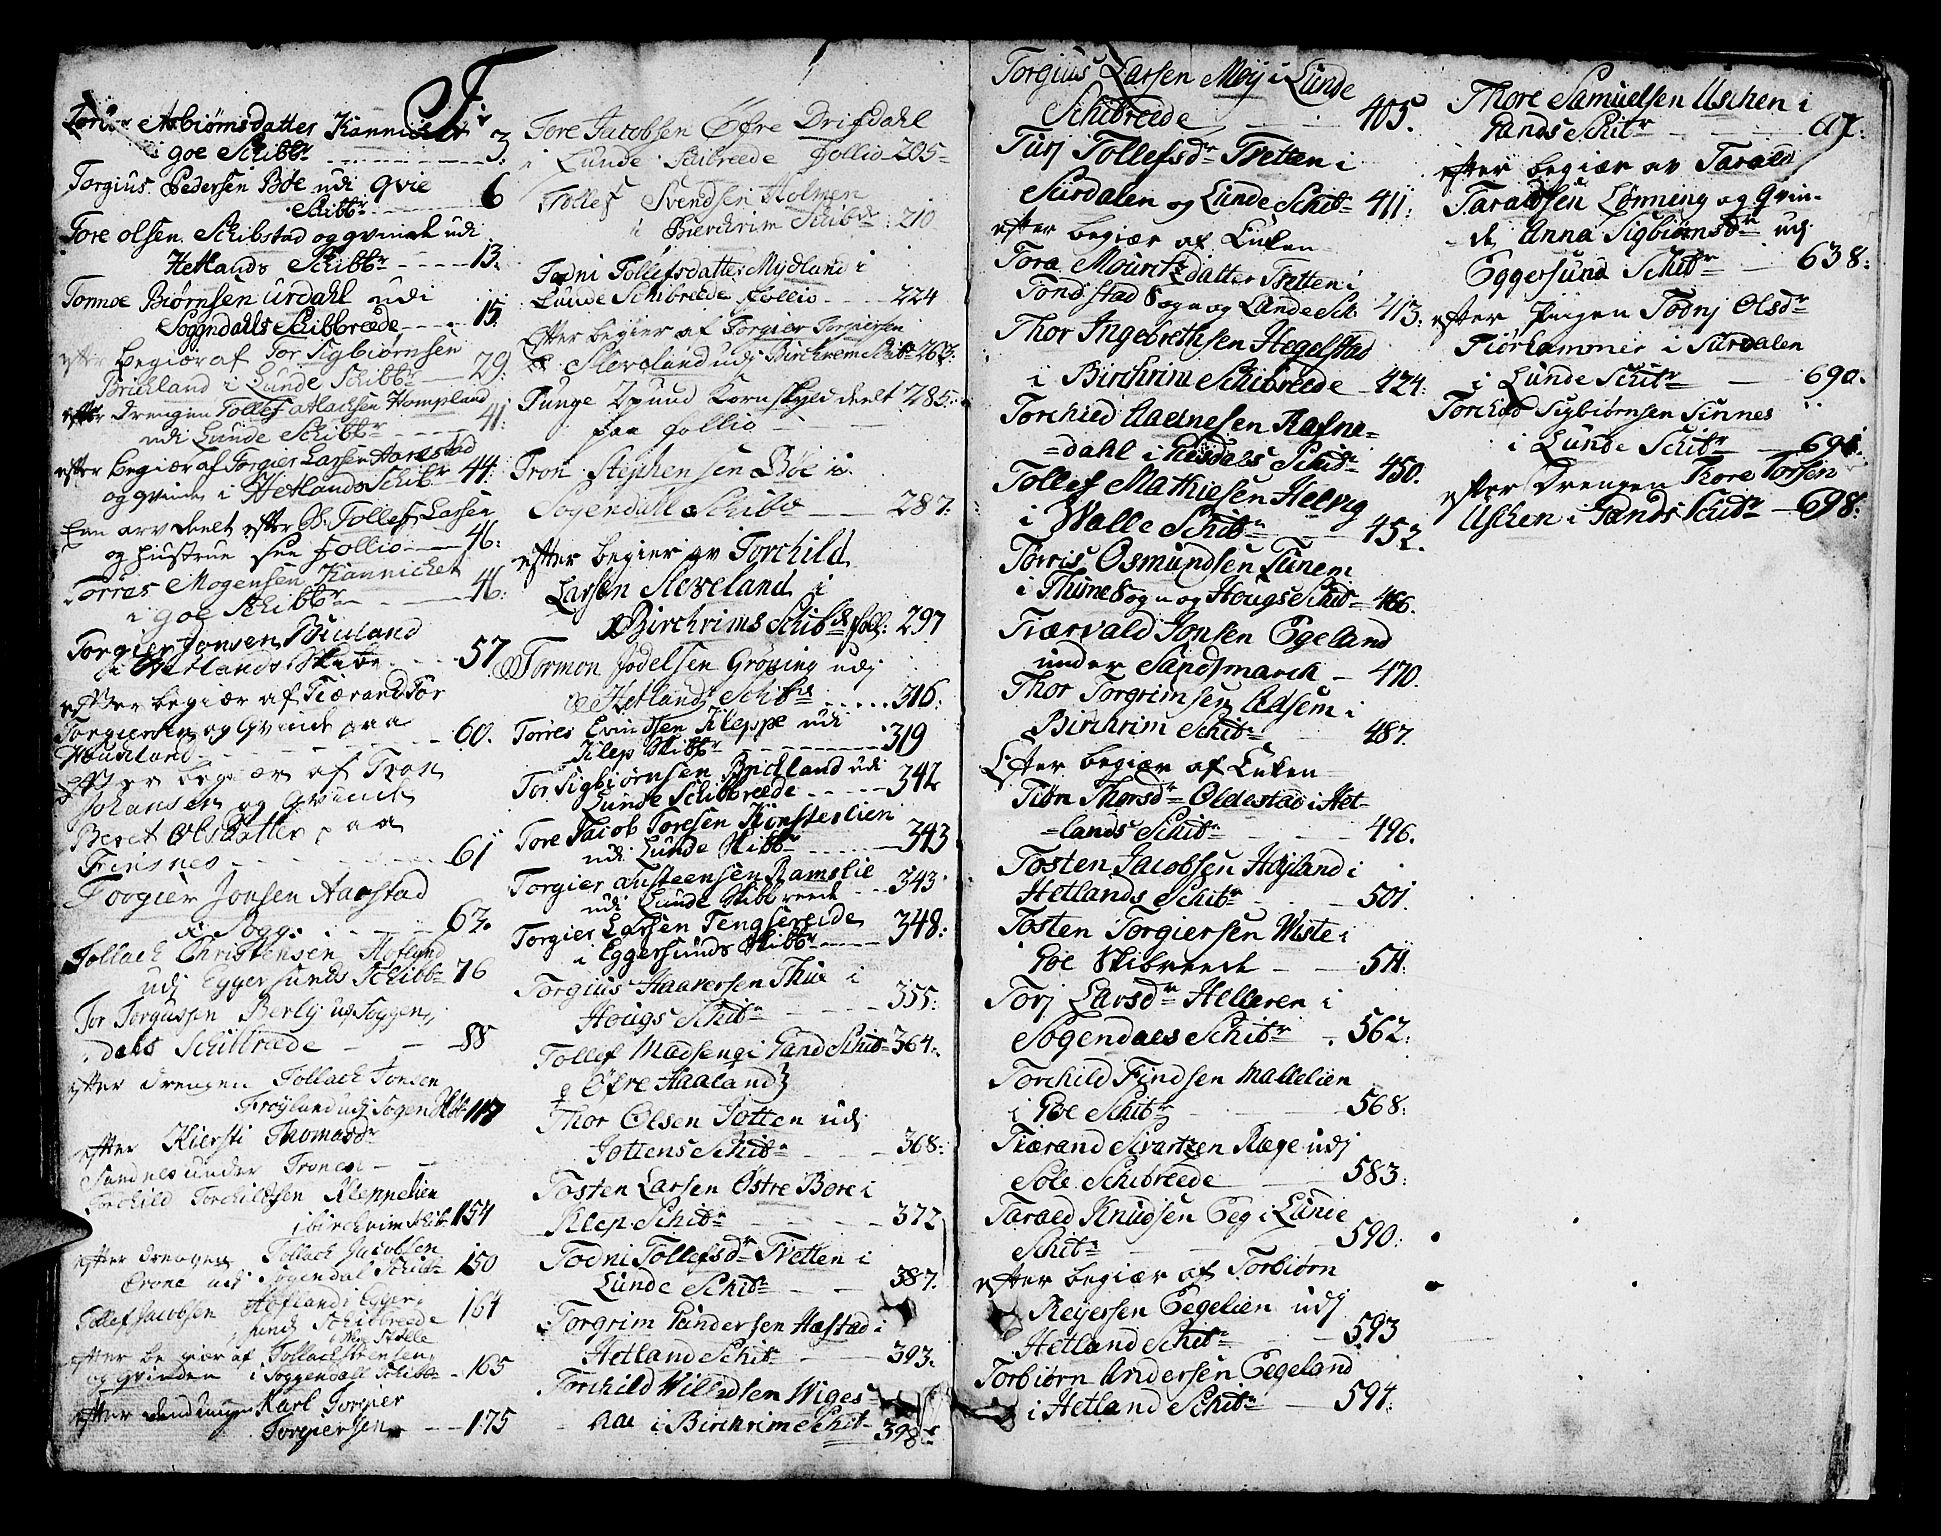 T
Asbiørnsdatter Kannichet
i goe Schibbr 3.
Torgius Pedersen Bøe udi qvie
Schibbr 6
Tore olsen Schibstad og qvinde udi
Hetlands Schibbr 13.
Tormoe Biørnsen Urdahl udi
Soggndahls Schibbreede 15.
efter begiær af Tor Sigbiørnsen
Brichland i Lunde Schibbr 29.
efter Drengen Tollef Hompland
udi Lunde Schibbr 41.
efter begiær af Torgier Larsen Aarrestad
og qvinde i Hetlands Schibr 44.
Een arv deelt efter Tollef Larsen
og hustrue see follio 46.
Torres Mogensen Kannichet
i goe Schibbr 46.
Torgier Jonsen Biuland
i Hetlands Skibr 57
efter begiær af Tiærand Tor
Torgiersen og Qvinde paa
Hauchland 60.
efter begiær af Tron
Johansen og Qvinde
Beret Olsdatter paa
Firisnes 61
Torgier Jonsen Aarstad
i Sogg. 62.
Tollach Christensen Hefland
udj Eggersunds Schibbr 76
Tor Torgussen Berlj udj Soggen
dals Schibreede 88
efter drengen Tollach Jonsen
Frøyland udj Sogen 117
efter Kiersti Thomasdr
Sandnes under Tronem
Torchild Torchildsen Kleppelien
i birchrim schibr 154
efter drengen Tollach Jacobsen
Drone udj Sogendal Schibr 150
Tollef Jacobsen Hofland i Egger
sunds Schibreede 164
efter begiær af Tollach Steensen
og Qvinden i Soggendals Schibr 165
efter Karl Torgier
Torgiersen 175
Tore Jacobsen Øfre Drifdahl
i Lunde Schibreede follio 205
Tollef Svendsen Holmen
i Bierchrim Schibr 210
Todni Tollefsdatter Mydland i
Lunde Schibreede follio 224
Efter begier af Torgier Torgiersen
Sleveland udj Birchrem Schibr 263.
Tunge 2 pund Kornskyld deelt 285.
paa follio
Tron Stephensen Bøe i
Sogendahl Schibr 287.
efter begier av Torchild
Larsen Sleveland i
Birchrims Schibr foll: 297
Tormon Jodelsen Grøning udj
Hetlands Schibr 316.
Torres Evindsen Kleppe udi
Klep Skibbr 319
Tor Sigbiørnsen Brichland udi
Lunde Schibbreede 342
Tore Jacob Toresen Konstelien
udi Lunde Skibbr 343
Torgier Austeensen Ramslie
udi Lunde Skibbreede 343
Torgier Larsen Tengsereide
i Eggersunds Skibbr 348.
Torgius Haaversen Thue i
Hougs Schibr 355.
Tollef Madsen i Gand Schibr 364.
Øfre Haaland
Thor Olsen Jotten udj
Jottens Schibr 368.
Tosten Larsen Østre Bore i
Klep Schibr 372
Todni Tollefsdr Tvetten i
Lunde Schibr 387.
Torgrim Gundersen Hæstad i
Hetland Schibr 393.
Torchild Willumsen Wiges
Aae i Birchrim Schibr 398
Torgius Larsen Moÿ i Lunde
Schibreede 405.
Turj Tollefsdr Tvetten i
Sirdalen og Lunde Schibr 411.
efter begiær af Enken
Tora Mouritzdatter Tvetten i
Tonstad Sogn og Lunde Sch. 413.
Thor Ingebrethsen Hegelstad
i Birchrim Schibreede 424.
Torchild Aadnesen Rafne
dahl i Riisdals Schibr 450.
Tollef Mathiesen Helvig
i Walle Schibr 452.
Torris Osmundsen Tunem
i Thime Sogn og Hougs Schibr 466.
Tiærvald Jonsen Egeland
under Sandsmarch 470.
Thor Torgrimsen Adsem i
Birchrim Schibr 487.
Efter begiær af Enken
Tiøn Thorsdr Oldestad i Het
lands Schibr 496.
Tosten Jacobsen Høyland i
Hetlands Schibr 501.
Tosten Torgiersen Wiste i
Goe Skibreede 511.
Torj Larsdr Helleren i
Sogendaels Schibr 562.
Torchild Findsen Mallelien
i Goe Schibr 568.
Tiærand Svartzen Ræge udj
Sole Schibreede 583.
Taraed Knudsen Eeg i Lunde
Schibr 590.
efter begiær af Torbiørn
Reyersen Eegelien udj
Hetland Schibr 593
Torbiørn Andersen Eegeland
i Hetland Schibr 594.
Thore Samuelsen Uschen i
Gands Schibr 617.
efter begiær av Tarald
Taraldsen Lønning og Qvin
de Anna Sigbiørnsdr udj
Eggersund Schibr 638.
efter Pigen Todnj Olsdr
Fiørhammer i Sirdalen
i Lunde Schibr 690.
Torchild Sigbiørnsen Sinnes
i Lunde Schibr 691.
efter Drengen Thore Torsen
Uschen i Gands Schibr 698.